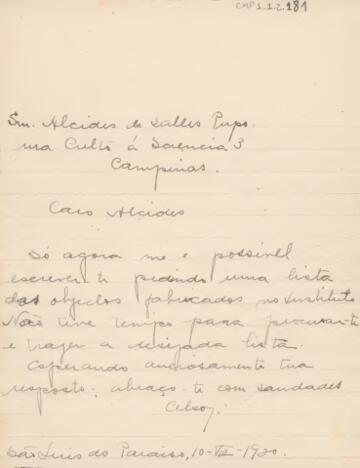 CMP 1.1.2.181
Snr. Alcides de Salles Pupo
rua Culto á Sciencia 3
Campinas.
Caro Alcides
Só agora me e possivel
escrever-te pedindo uma lista
dos objectos fabricados no Instituto
Não tive tempo para procurar-te
e trazer a desejada lista.
Esperando anciosamente tua
resposta; abraço-te com saudades
Celso.
São Luis do Paraiso, 10-VII-1920.